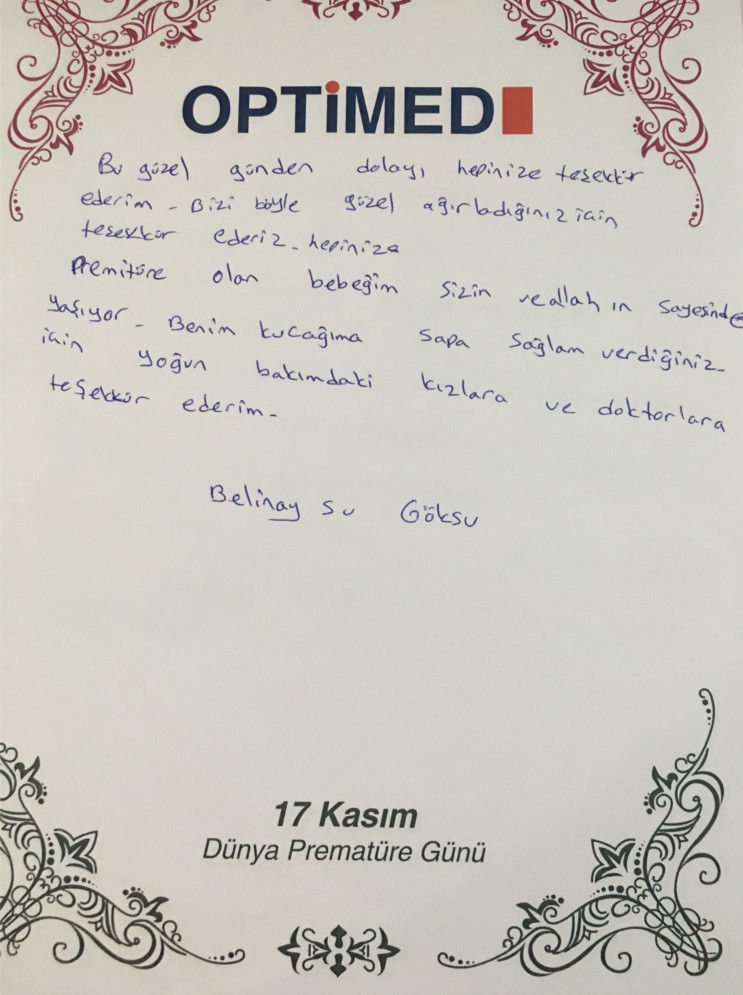 OPTiMED
Bu güzel günden dolayı hepinize teşekkür
ederim - Bizi böyle güzel ağırladığınız için
teşekkür ederiz - hepinize
Premitüre olan bebeğim sizin ve allah ın sayesinde
yaşıyor - Benim kucağıma sapa sağlam verdiğiniz -
için yoğun bakımdaki kızlara ve doktorlara
teşekkür ederim -
Belinay su Göksu
17 Kasım
Dünya Prematüre Günü